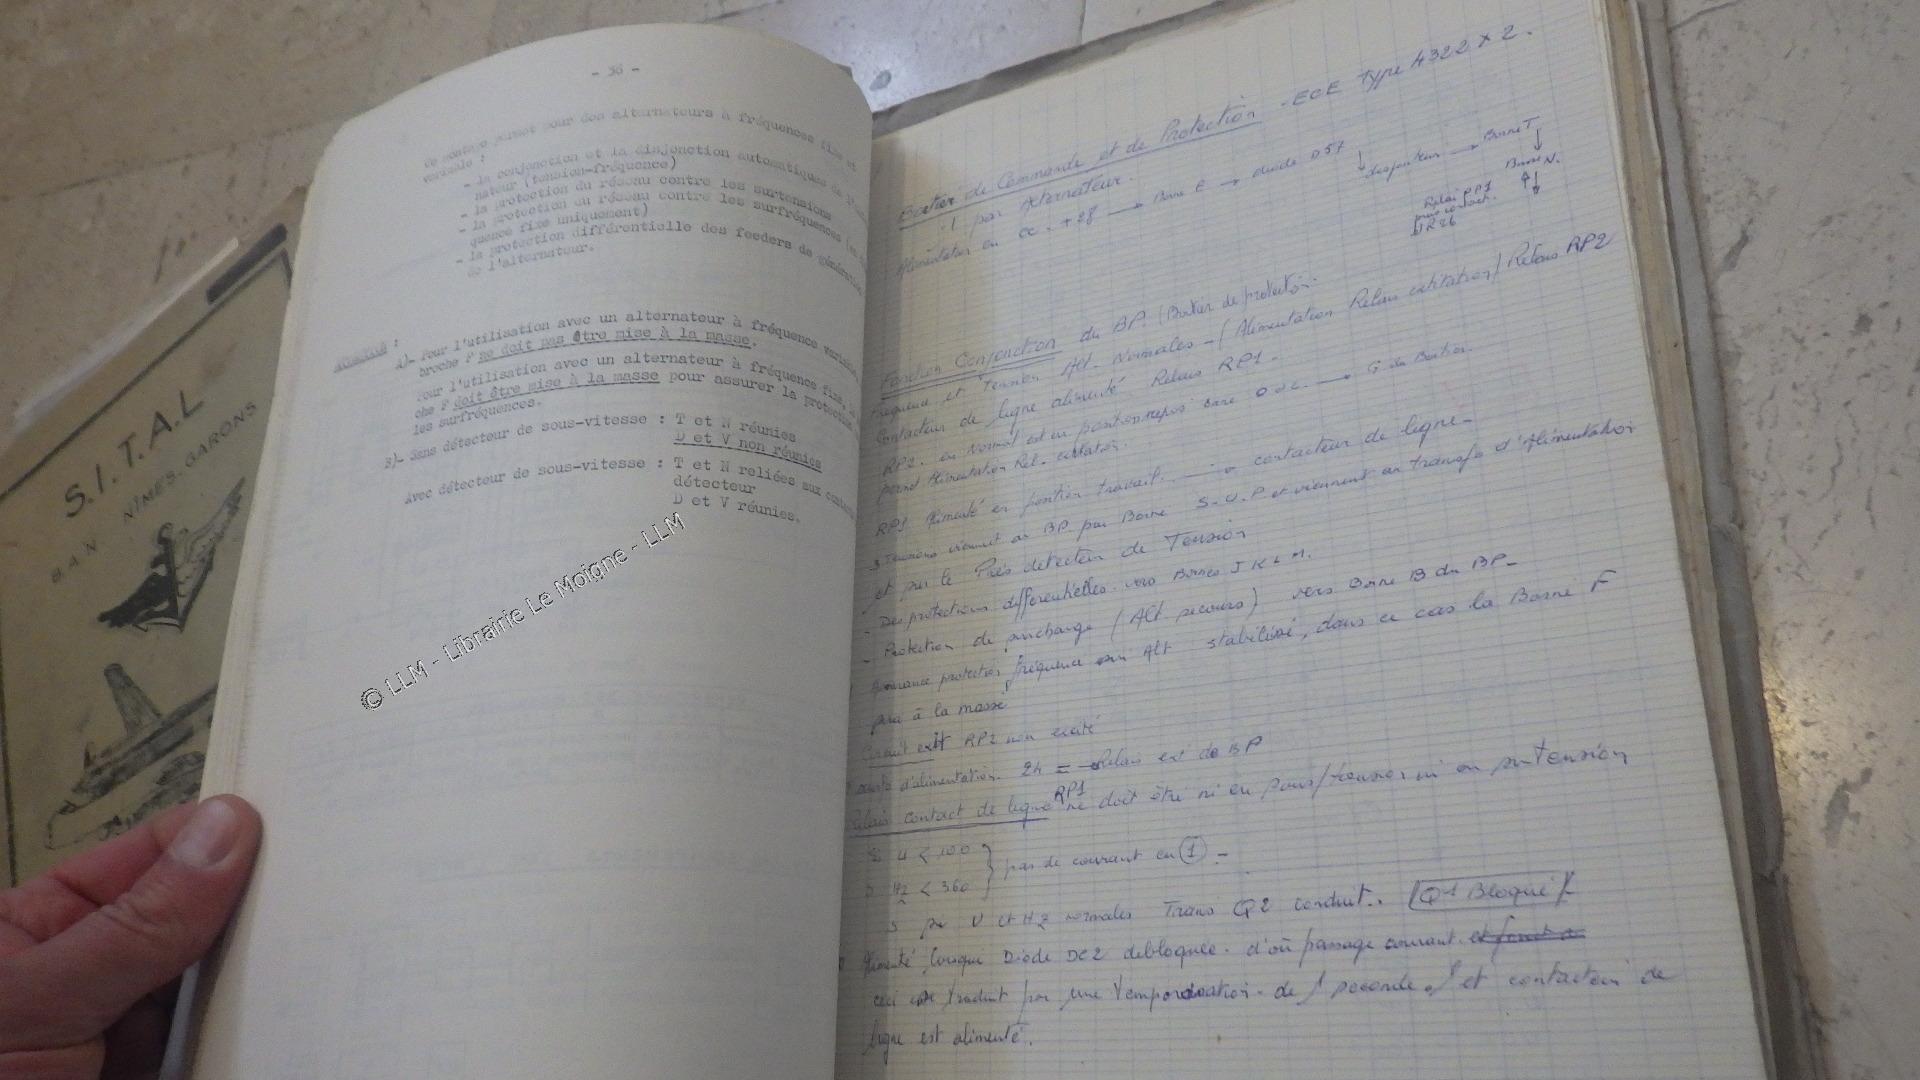 S.I.T.A.L
B.A.N NÎMES-GARONS
- 36 -
Ce montage permet pour des alternateurs à fréquences fixe et
variable :
- la conjonction et la disjonction automatiques de
nateur (tension-fréquence)
- la protection du réseau contre les surtensions
- la protection du réseau contre les surfréquences
quence fixe uniquement)
- la protection différentielle des feeders de
de l'alternateur.
A)- Pour l'utilisation avec un alternateur à fréquence
broche F ne doit pas être mise à la masse.
Pour l'utilisation avec un alternateur à fréquence fixe, la
che F doit être mise à la masse pour assurer la protection
les surfréquences.
B)- Sans détecteur de sous-vitesse : T et N réunies
D et V non réunies
Avec détecteur de sous-vitesse : T et N reliées aux
détecteur
D et V réunies.
© LLM - Librairie Le Moigne - LLM
Boitier de Commande et de Protection - ECE Type 4322 x 2.
1 par Alternateur.
Alimentation en cc. +28 → Borne E → diode D57 ↓ disjoncteur → Borne T
Borne N.
Relais RP1
JR26
Fonction Conjonction du BP. (Boitier de protection.
Fréquence et Tension Alt. Normales - (Alimentation Relais excitation) Relais RP2
Contacteur de ligne alimenté Relais RP1.
RP2. en Normal est en position repos → G du Boitier.
permet Alimentation Rel. excitation.
RP1 Alimenté en position travail. → contacteur de ligne -
3 Tensions viennent au BP par Borne S-U-P et viennent au transfo d'Alimentation
et sur le détecteur de Tension
- Des protections differentielles. vers Bornes J K L M.
- Protection de surcharge (Alt. secours) vers Borne B du BP -
protection fréquence sur Alt stabilisé, dans ce cas la Borne F
sera à la masse
Circuit exit RP2 non excité
d'alimentation. 2h = Relais ext de BP
Relais contact de ligne RP1 ne doit être ni en sous/tension ni en surtension
Si U < 100
Hz < 360 } pas de courant en ① -
U et Hz normales Trans Q2 conduit.. Q1 Bloqué
Alimenté, lorsque Diode DC2 debloquée. d'où passage courant.
ceci se traduit par une temporisation. de 1 seconde. et contacteur de
ligne est alimenté.